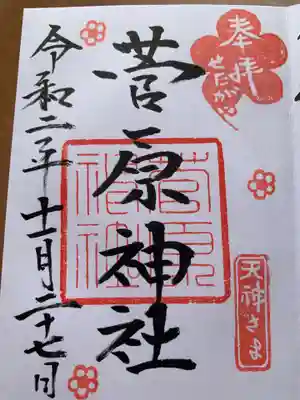 奉拝
せたがや
天神さま
菅原神社
菅原神社
令和二年十一月二十七日